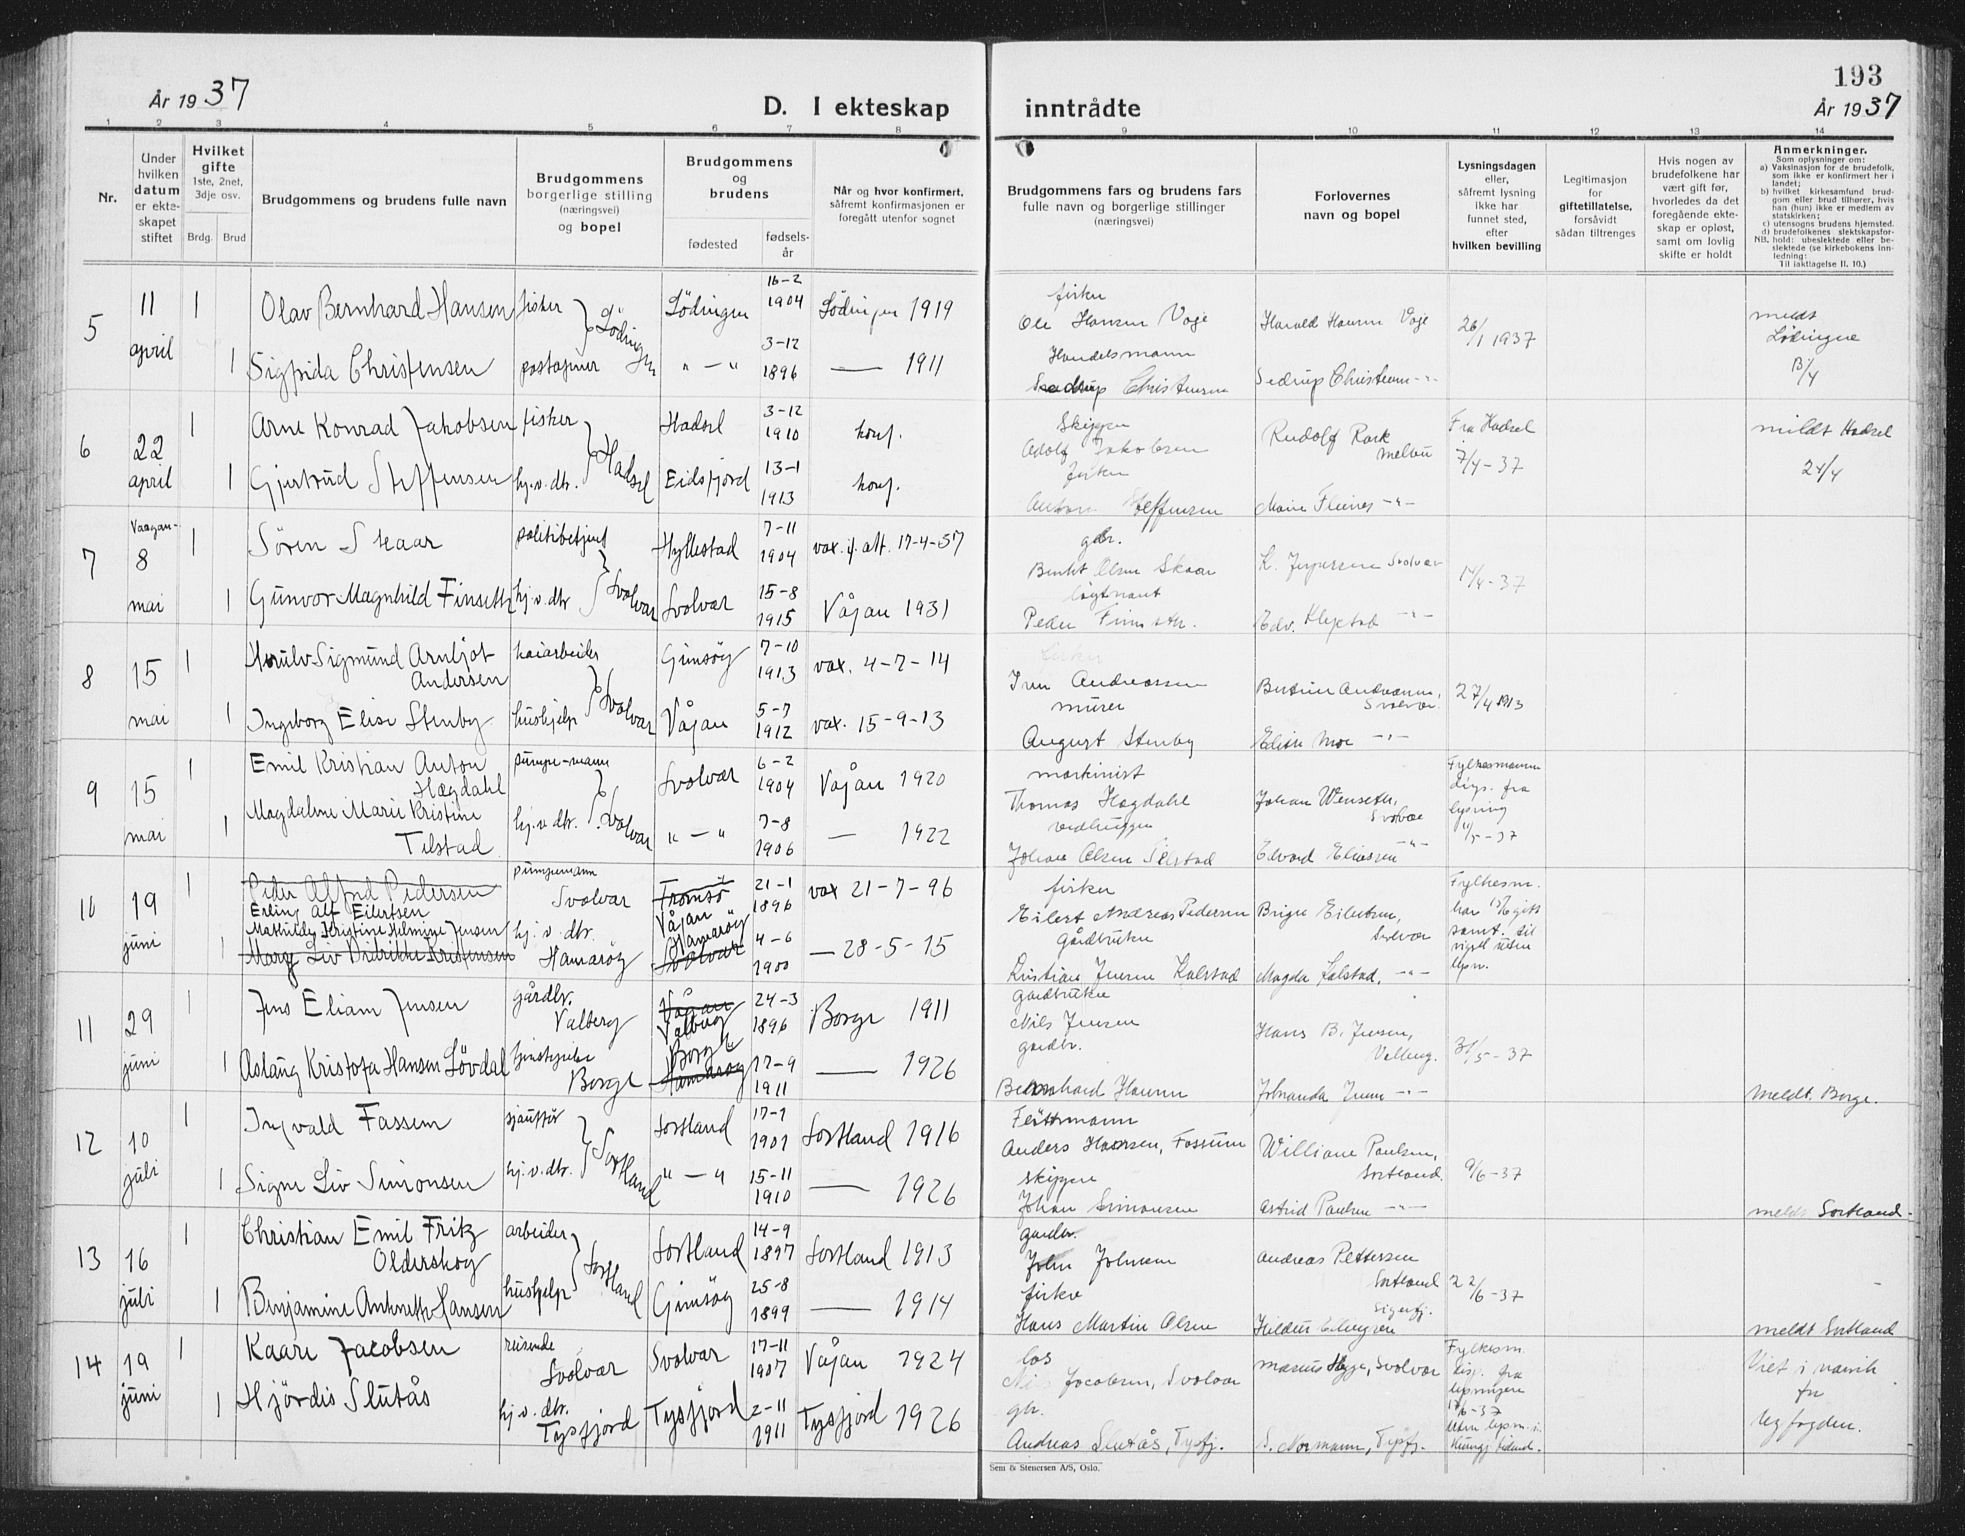 193
År 1937
D. I ekteskap inntrådte
År 1937
1 2 3 4 5 6 7 8 9 10 11 12 13 14
Nr.
Under hvilken datum er ekteskapet stiftet
Hvilket gifte
1ste, 2net, 3dje osv.
Brdg. Brud
Brudgommens og brudens fulle navn
Brudgommens borgerlige stilling (næringsvei) og bopel
Brudgommens og brudens
fødested
fødselsår
Når og hvor konfirmert, såfremt konfirmasjonen er foregått utenfor sognet
Brudgommens fars og brudens fars fulle navn og borgerlige stillinger (næringsvei)
Forlovernes navn og bopel
Lysningsdagen eller, såfremt lysning ikke har funnet sted, efter hvilken bevilling
Legitimasjon for giftetillatelse, forsåvidt sådan tiltrenges
Hvis nogen av brudefolkene har vært gift før, hvorledes da det foregående ekteskap er opløst, samt om lovlig skifte er holdt
Anmerkninger.
Som oplysninger om:
a) Vaksinasjon for de brudefolk, som ikke er konfirmert her i landet;
b) hvilket kirkesamfund brudgom eller brud tilhører, hvis han (hun) ikke er medlem av statskirken;
c) utensogns brudens hjemsted.
d) brudefolkenes slektskapsforhold: ubeslektede eller beslektede (se kirkebokens innledning:
NB.
Til iakttagelse II. 10.)
5 11 april 1 Olav Bernhard Hansen fisker Lödingen Lödingen 16-2 1904 Lödingen 1919 fisker Ole Hansen Voje Harald Hansen Voje 26/1 1937 meldt Lödingen 13/4
1 Sigfrida Christensen postopner " — " 3-12 1896 — 1911 Handelsmann Sedrup Christensen Sedrup Christensen -"-
6 22 april 1 Arne Konrad Jakobsen fisker Hadsel Hadsel 3-12 1910 konf. Skipper Adolf Jakobsen Rudolf Rark Melbu Fra Hadsel 7/4-37 meldt Hadsel 24/4
1 Gjertrud Steffensen hj.v.dtr. Eidsfjord 13-1 1913 konf. fisker Anton Steffensen Marie Fleines -"-
7 Vaagan- 8 mai 1 Sören Skaar politibetjent Svolvær Hyllestad 7-11 1904 vax. if. att. 17-4-37 gbr. Bendt Olsen Skaar K. Jespersen Svolvær 17/4-37
1 Gunvor Magnhild Finseth hj.v.dtr Svolvær 15-8 1915 Vågan 1931 løytnant Peder Finseth. Edv. Klepstad -"-
8 15 mai 1 Herulv Sigmund Arnljot Andersen kaiarbeider Svolvær Gimsöy 7-10 1913 vax. 4-7-14 fisker Iver Andreassen Svolvær 27/4 1913
1 Ingeborg Elise Stenby hushjelp Vågan 5-7 1912 vax. 15-9-13 murer August Stenby Elise Moe -"-
9 15 mai 1 Emil Kristian Anton Hægdahl pumpe-mann Svolvær Svolvær 6-2 1904 Vågan 1920 maskinist Thomas Hægdahl Johan Wenseth, Svolvær Fylkesmannens disp. fra lysning 11/5-37
1 Magdalene Marie Kristine Tilstad hj.v.dtr. " — " 7-8 1906 — 1922 vedhugger Johan Olsen Tilstad Edvard Eliassen -"-
10 19 juni 1 Peder Alfred Pedersen Erling Alf Eilertsen pumpemann Svolvær Tromsö Vågan 21-1 1896 vax 21-7-96 fisker Eilert Andreas Pedersen Birger Eilertsen, Svolvær Fylkesm. har samt. til vigsel uten lysn.
1 Mathilde Kristine Helmine Jensen Mary Liv Fredrikke Kristensen hj.v.dtr. Hamaröy Hamaröy Svolvær 4-6 1900 — 28-5-15 gårdbruker Kristian Jensen Kalstad Magda Kalstad, -"-
11 29 juni 1 Jens Eliam Jensen gårdbr. Valberg Vågan Valberg 24-3 1896 Borge 1911 gårdbruker Nils Jensen Hans B. Jensen, Valberg. 31/5-37
1 Aslaug Kristofa Hansen Lövdal Borge Borge Hamaröy 17-9 1911 — 1926 gardbr. Bernhard Hansen Johanda Jensen -"- meldt. Borge.
12 10 juli 1 Ingvald Fossum sjauffør Sortland Sortland 17-7 1901 Sortland 1916 Anders Hansen, Fossum William Paulsen, Sortland. 9/6-37
1 Signe Liv Simonsen hj.v.dtr. " — " 15-11 1910 — 1926 skipper Johan Simonsen Astrid Paulsen -"- meldt Sortland.
13 16 juli 1 Christian Emil Fritz Olderskog arbeider Sortland Sortland 14-9 1897 Sortland 1913 gardbr. John Johnsen Andreas Pettersen Sortland 22/6-37
1 Benjamine Antonette Hansen hushjelp Gimsöy 25-8 1899 — 1914 fisker Hans Martin Olsen Sigerfj. meldt Sortland
14 19 juni 1 Kaare Jacobsen reisende Svolvær Svolvær 17-11 1907 Vågan 1924 los Nils Jacobsen, Svolvær Marius Hegge, Svolvær Fylkesm. disp. fra lysningen 17/6-37 Viet i Narvik
1 Hjördis Slutås hj.v.dtr. Tysfjord Tysfjord 2-11 1911 Tysfjord 1926 gbr. Andreas Slutås, Tysfj. S. Normann, Tysfj.
Sem & Stenersen A/S, Oslo.